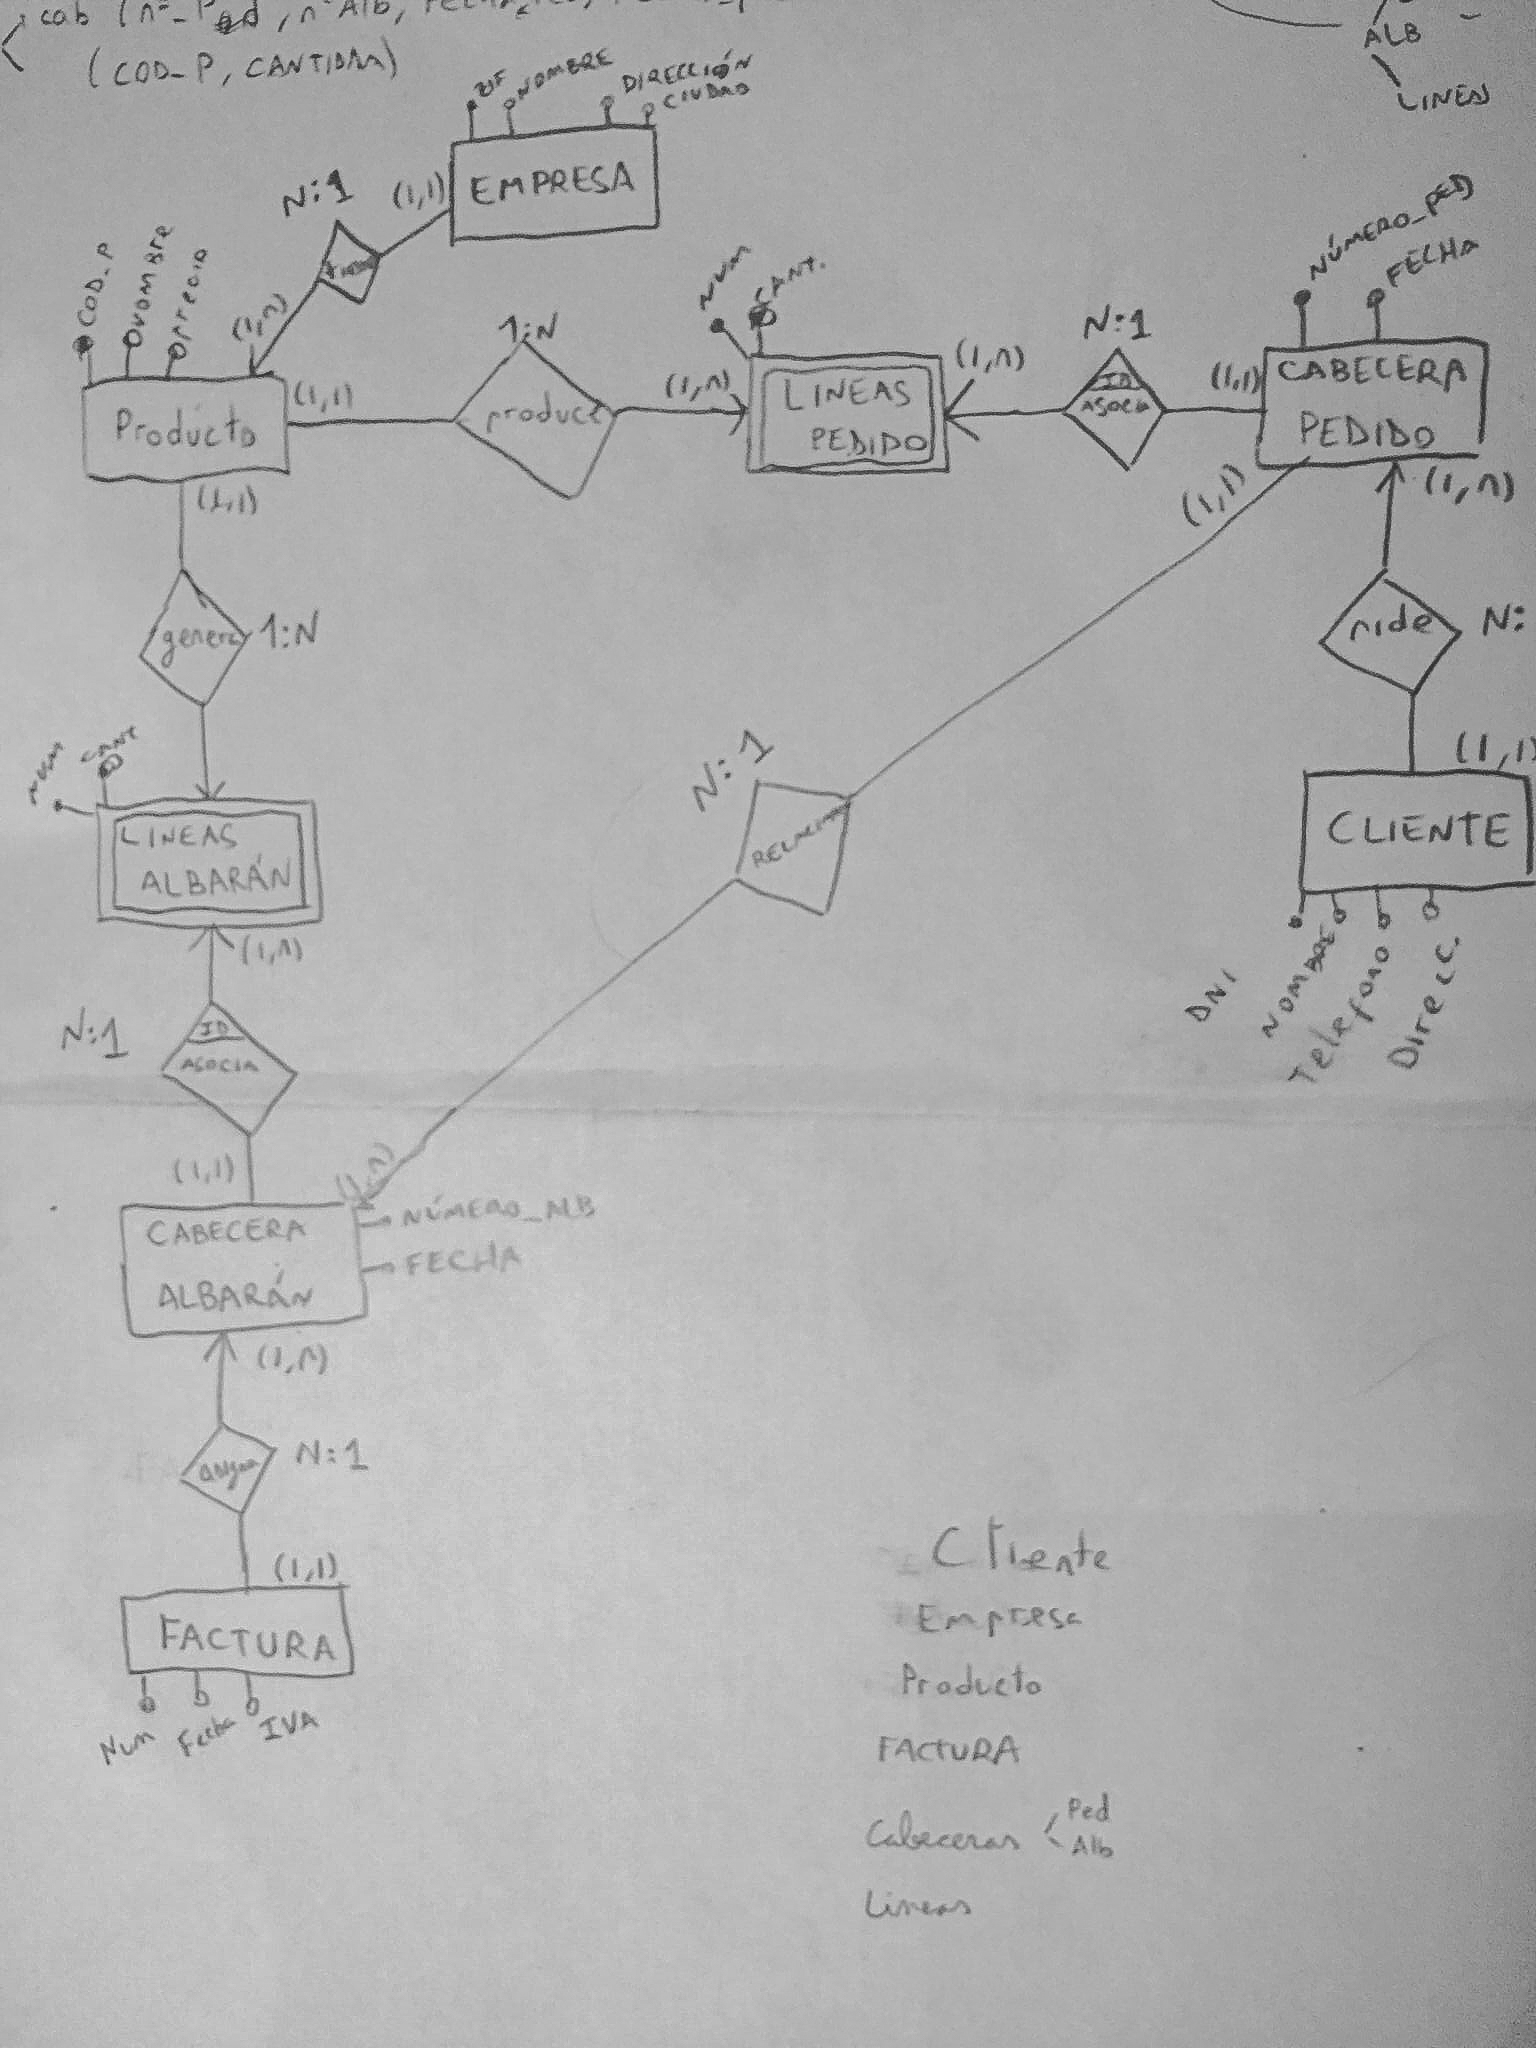 cab (nº_Ped, nº Alb,
(COD_P, CANTIDAD)
ALB
LINEAS
NOMBRE
DIRECCIÓN
CIUDAD
EMPRESA
N:1
(1,1)
(1,n)
COD_P
NOMBRE
precio
Producto
(1,1)
1:N
produce
(1,n)
NUM
CANT.
LINEAS
PEDIDO
(1,n)
N:1
ID
ASOCIA
(1,1)
NÚMERO_PED
FECHA
CABECERA
PEDIDO
(1,1)
(1,n)
pide
N:
(1,1)
CLIENTE
DNI
NOMBRE
Telefono
Direcc.
(1,1)
genera
1:N
NUM
CANT
LINEAS
ALBARÁN
(1,n)
N:1
ID
ASOCIA
(1,1)
N:1
(1,n)
CABECERA
ALBARÁN
NÚMERO_ALB
FECHA
(1,n)
N:1
(1,1)
FACTURA
Num
Fecha
IVA
Cliente
Empresa
Producto
FACTURA
Cabeceras
Ped
Alb
Lineas